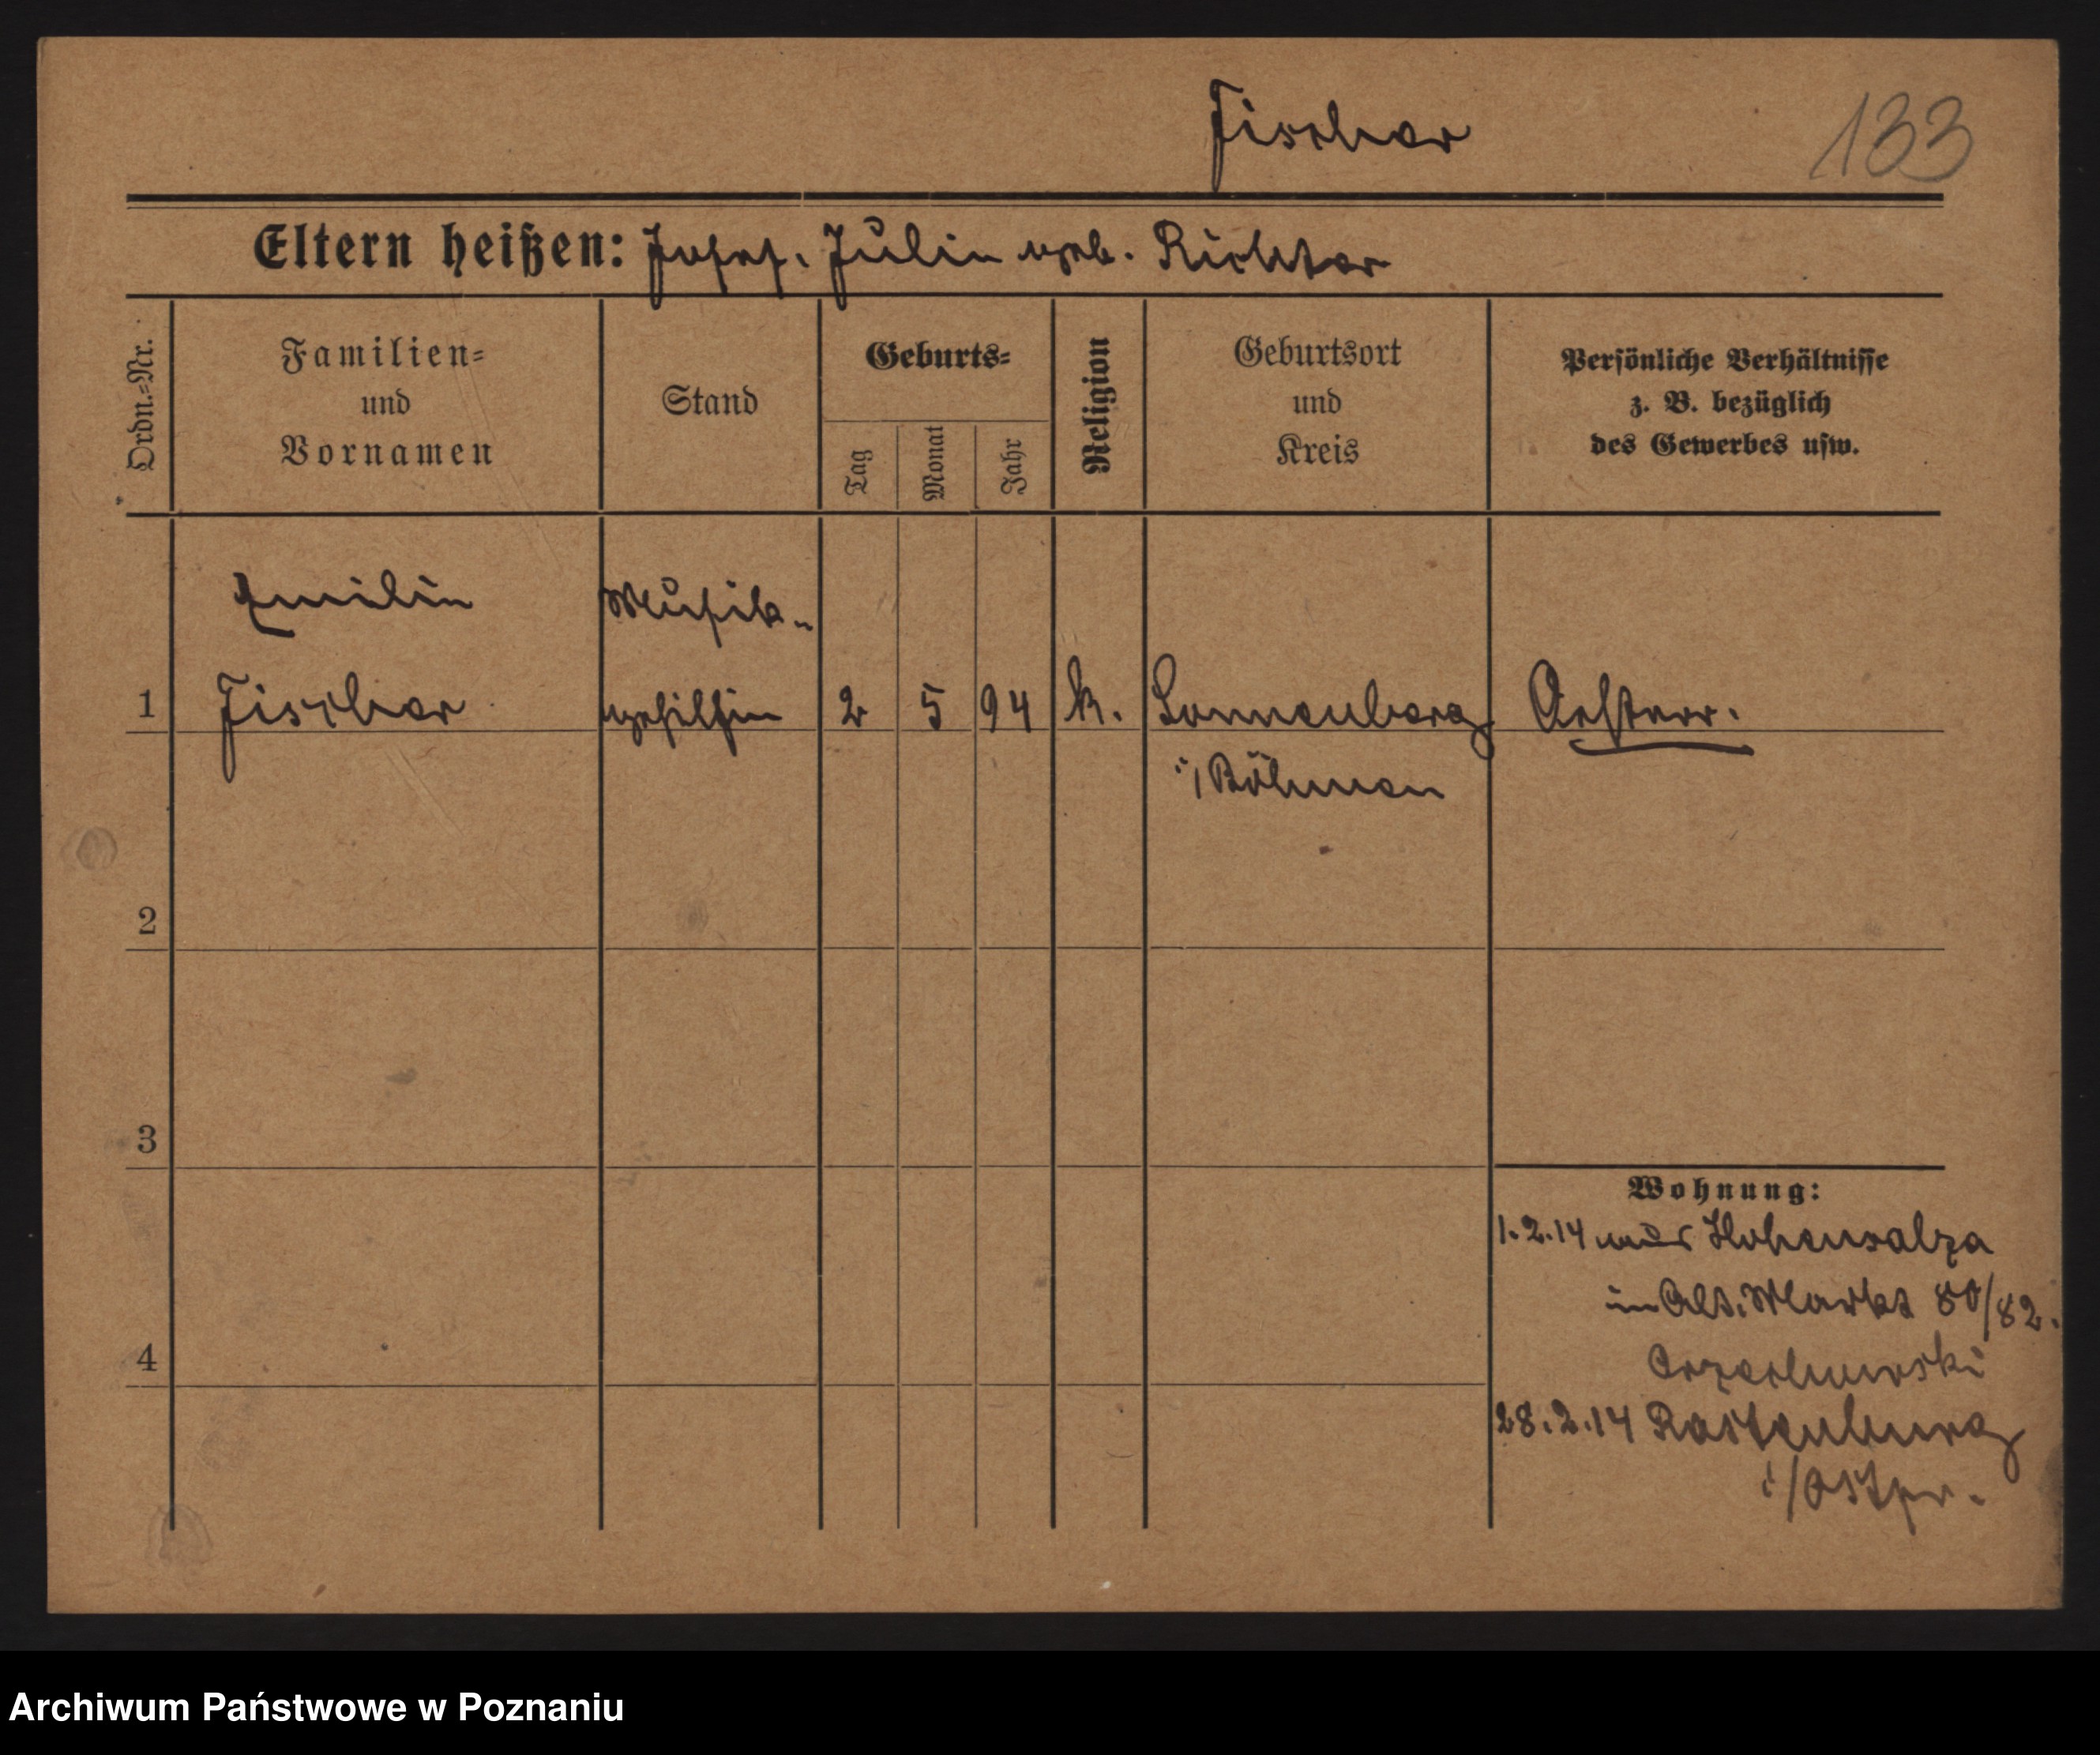 Fischer
133
Eltern heißen: Josef. Julie geb. Richter
Ordn.=Nr.
Familien=
und
Vornamen
Stand
Geburts=
Tag
Monat
Jahr
Religion
Geburtsort
und
Kreis
Persönliche Verhältnisse
z. B. bezüglich
des Gewerbes usw.
Emilie Musik-
1 Fischer gehilfin 2 5 94 k. Sonnenberg Oesterr.
i/Böhmen
2
3
Wohnung:
1.2.14 aus Hohensalza
in Alt. Markt 80/82.
4
28.2.14 Rastenburg
i/Ostpr.
Archiwum Państwowe w Poznaniu